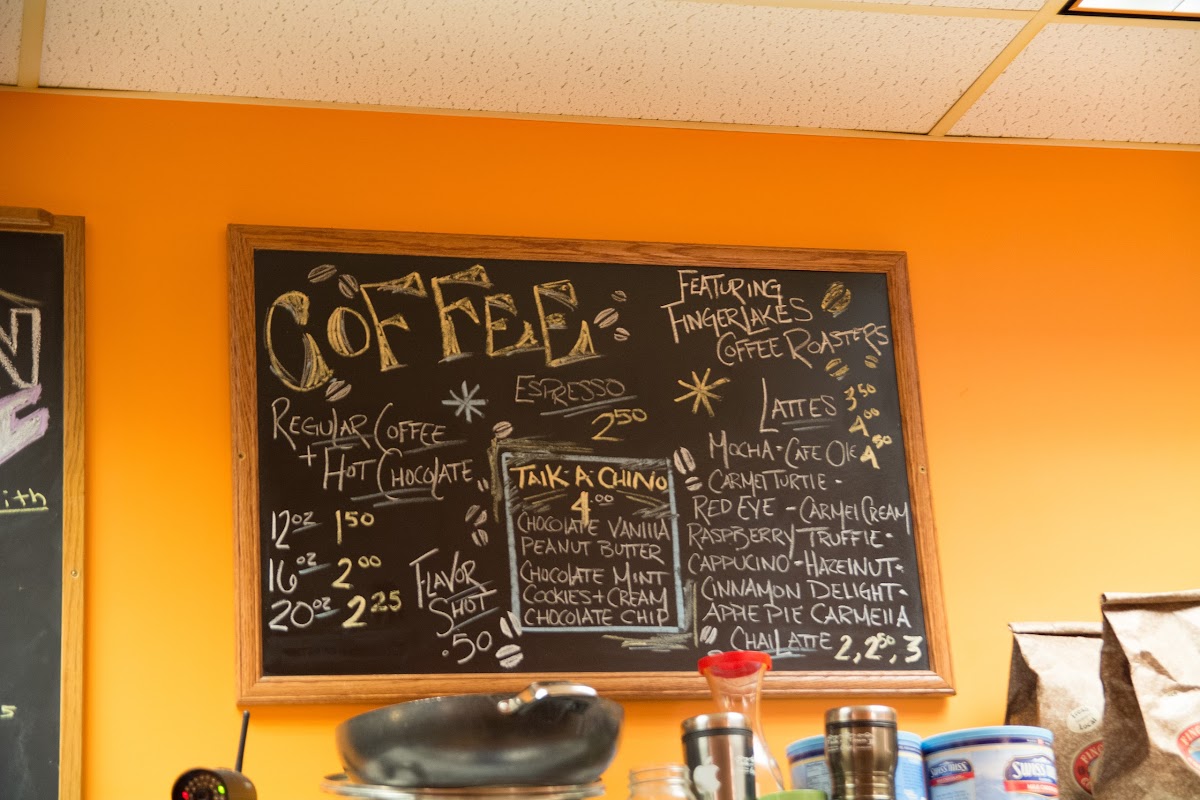 COFFEE
FEATURING
FINGERLAKES
COFFEE ROASTERS
ESPRESSO
2.50
REGULAR COFFEE
+ HOT CHOCOLATE
12oz 1.50
16oz 2.00
20oz 2.25
FLAVOR
SHOT
.50
TAIK-A-CHINO
4.00
CHOCOLATE VANILLA
PEANUT BUTTER
CHOCOLATE MINT
COOKIES + CREAM
CHOCOLATE CHIP
LATTES 3.50
4.00
4.50
MOCHA - CAFE OLE
CARMEL TURTLE -
RED EYE - CARMEL CREAM
RASPBERRY TRUFFLE -
CAPPUCINO - HAZELNUT -
CINNAMON DELIGHT -
APPLE PIE CARMELLA
CHAI LATTE 2, 2.50, 3
ith
5
SWISS MISS
SWISS MISS